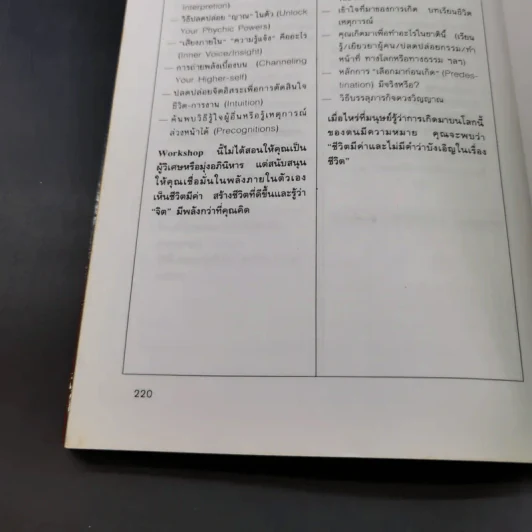 Interpretation)
— วิธีปลดปล่อย "ญาณ" ในตัว (Unlock
Your Phychic Powers)
— "เสียงภายใน" "ความรู้แจ้ง" คืออะไร
(Inner Voice/Insight)
— การถ่ายพลังเบื้องบน (Channeling
Your Higher-self)
— ปลดปล่อยจิตอิสระเพื่อการตัดสินใจ
ชีวิต-การงาน (Intuition)
— ค้นพบวิธีรู้ใจผู้อื่นหรือรู้เหตุการณ์
ล่วงหน้าได้ (Precognitions)
Workshop นี้ไม่ได้สอนให้คุณเป็น
ผู้วิเศษหรือมุ่งอภินิหาร แต่สนับสนุน
ให้คุณเชื่อมั่นในพลังภายในตัวเอง
เห็นชีวิตมีค่า สร้างชีวิตที่ดีขึ้นและรู้ว่า
"จิต" มีพลังกว่าที่คุณคิด
— เข้าใจที่มาของการเกิด บทเรียนชีวิต
เหตุการณ์
— คุณเกิดมาเพื่อทำอะไรในชาตินี้ (เรียน
รู้/เยียวยาผู้คน/ปลดปล่อยกรรม/ทำ
หน้าที่ ทางโลกหรือทางธรรม ฯลฯ)
— หลักการ "เลือกมาก่อนเกิด" (Predes-
tination) มีจริงหรือ?
— วิธีบรรลุภารกิจดวงวิญญาณ
เมื่อไหร่ที่มนุษย์รู้ว่าการเกิดมาบนโลกนี้
ของตนมีความหมาย คุณจะพบว่า
"ชีวิตมีค่าและไม่มีคำว่าบังเอิญในเรื่อง
ชีวิต"
220